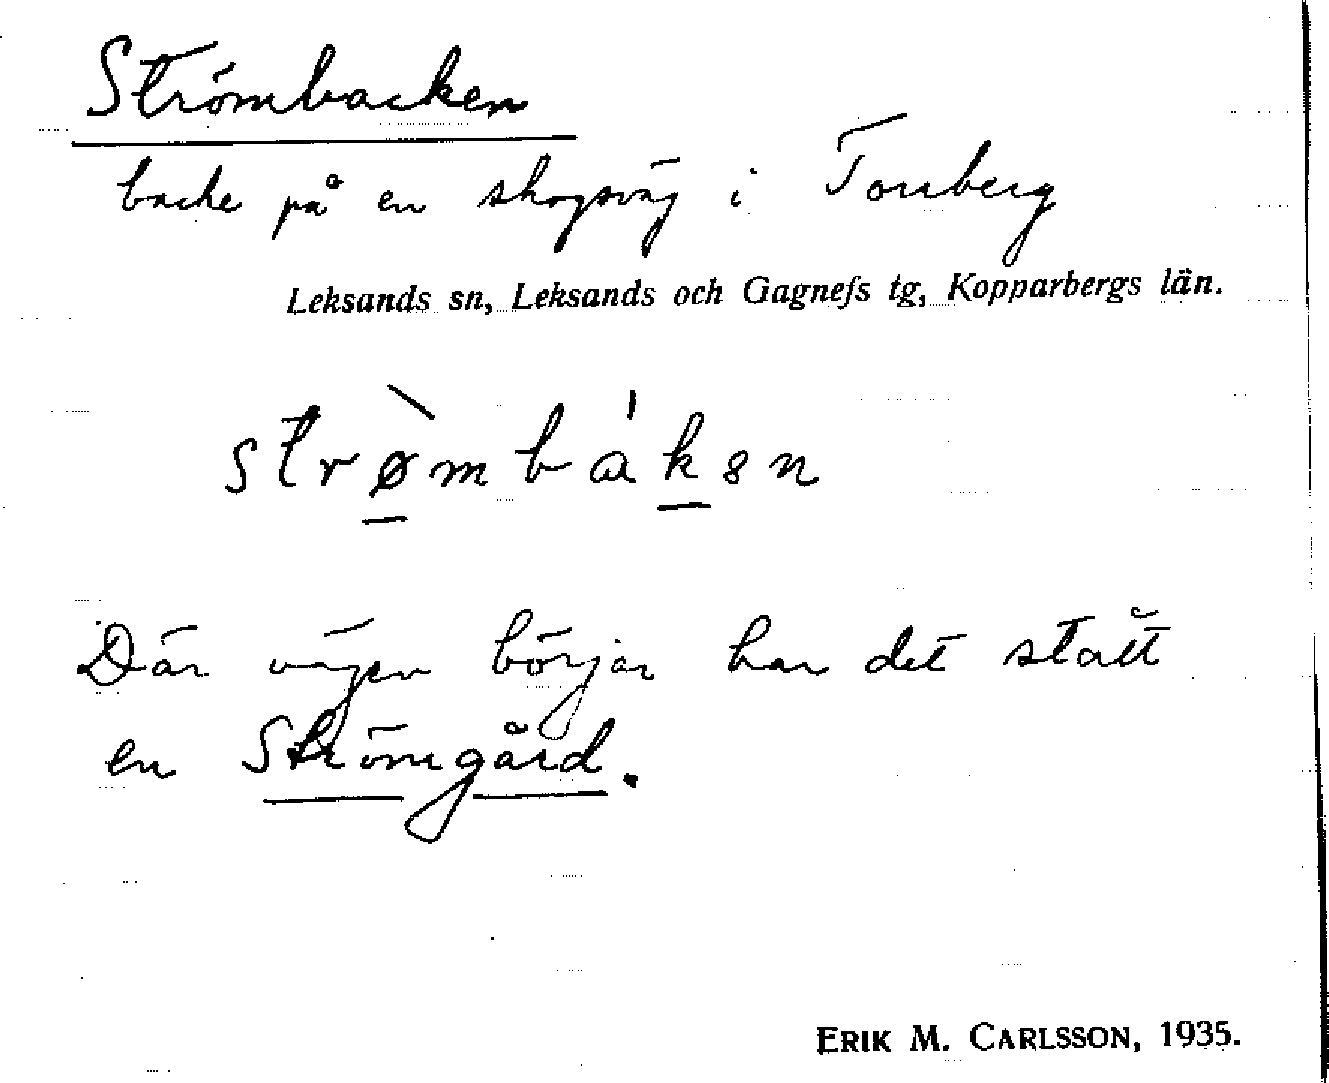 Strömbacken
backe på en skogsväg i Tomberg
Leksands sn, Leksands och Gagnefs tg, Kopparbergs län.
strø̀mbákən
Där vägen börjar har det stått
en Strömgård.
ERIK M. CARLSSON, 1935.